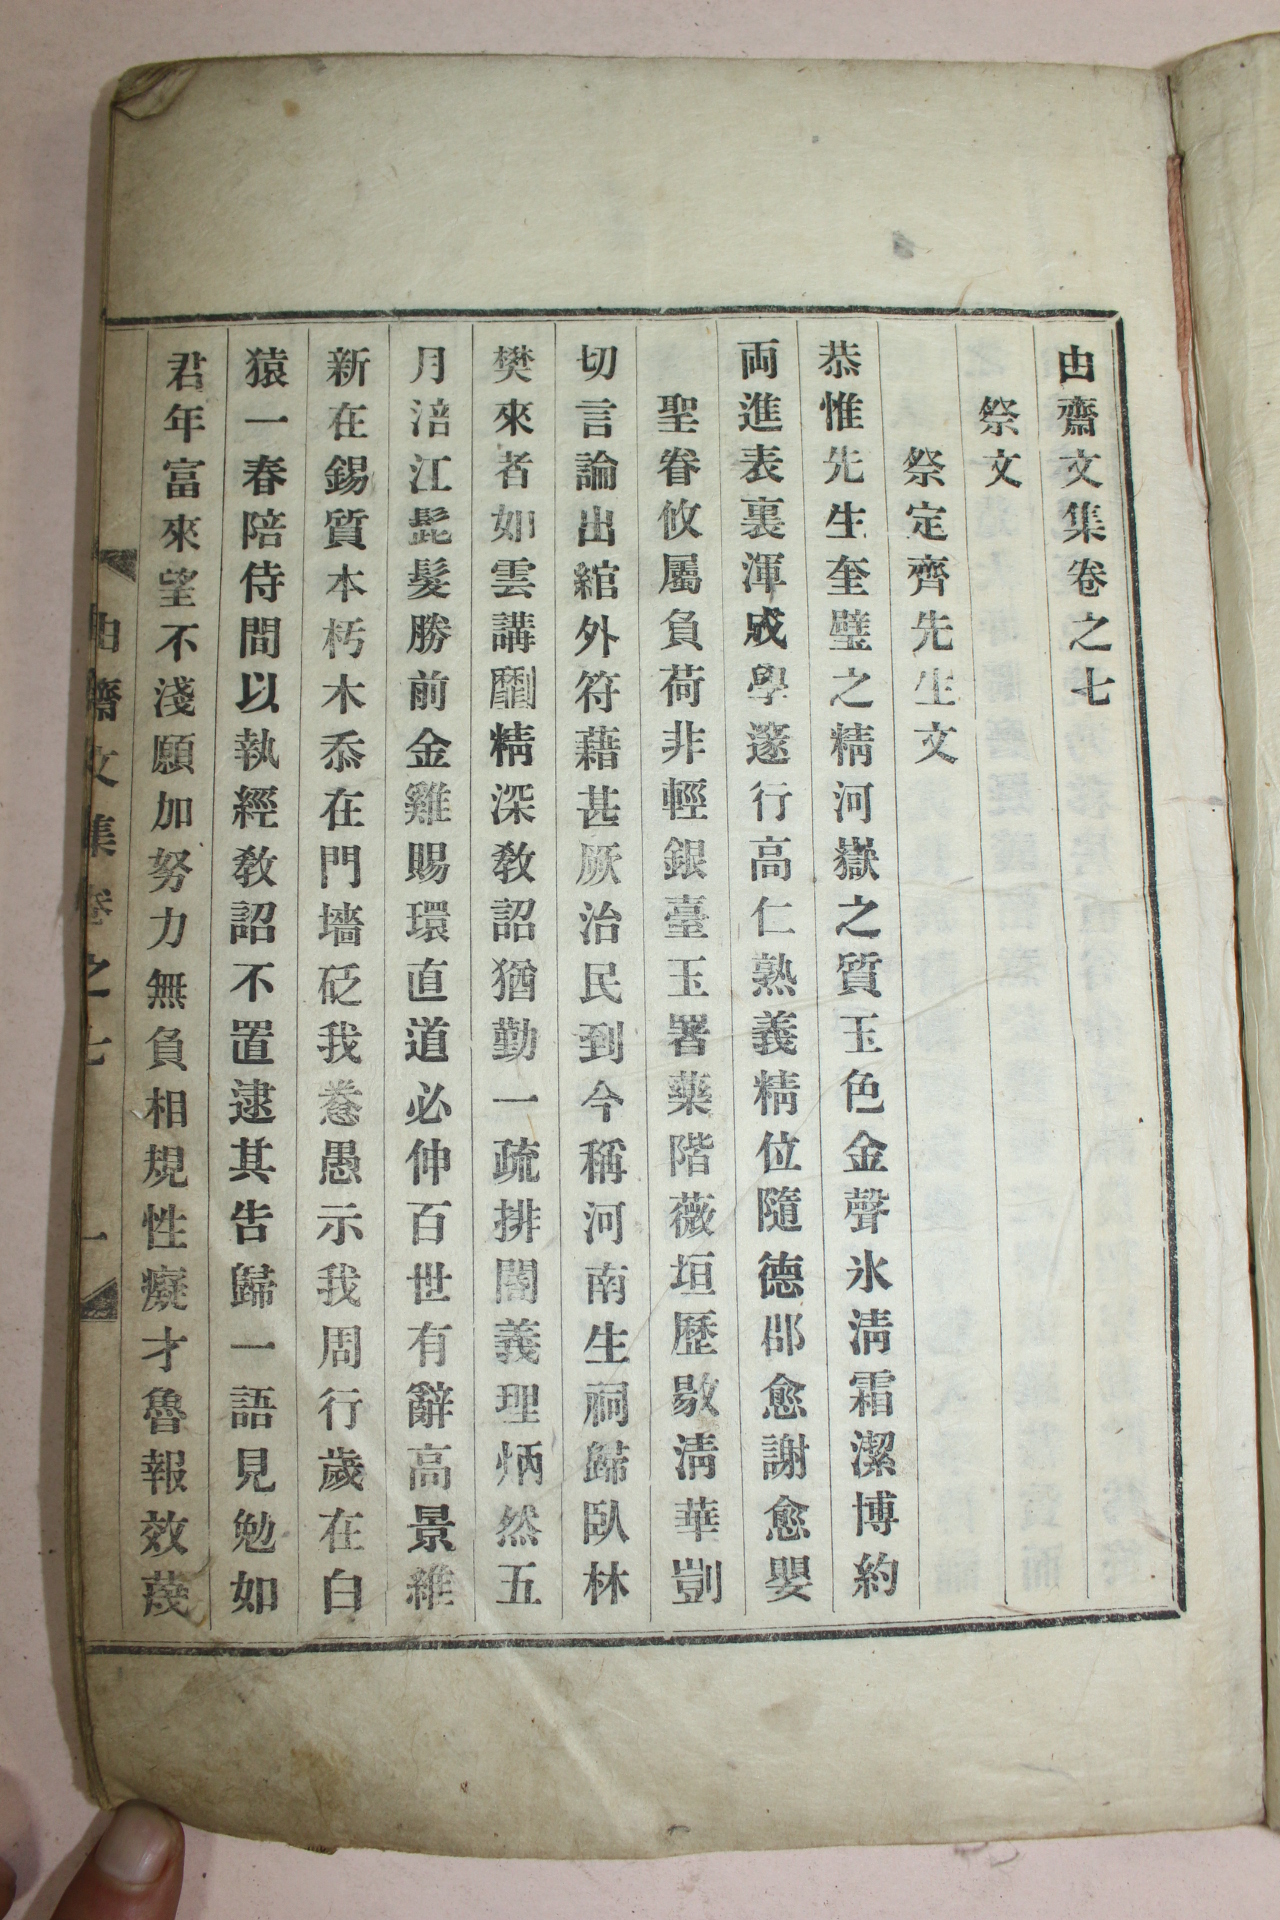 由齋文集卷之七
祭文
祭定齊先生文
恭惟先生奎璧之精河嶽之質玉色金聲氷淸霜潔博約
両進表裏渾成學邃行高仁熟義精位隨德邵愈謝愈嬰
聖眷攸屬負荷非輕銀臺玉署藥階薇垣歷敭淸華剴
切言論出綰外符藉甚厥治民到今稱河南生祠歸臥林
樊來者如雲講劘精深敎詔猶勤一疏排闔義理炳然五
月涪江髭髮勝前金雞賜環直道必伸百世有辭高景維
新在錫質本朽木忝在門墻砭我惷愚示我周行歲在白
猿一春陪侍間以執經敎詔不置逮其告歸一語見勉如
君年富來望不淺願加努力無負相規性癡才魯報效蔑
由齋文集卷之七 一